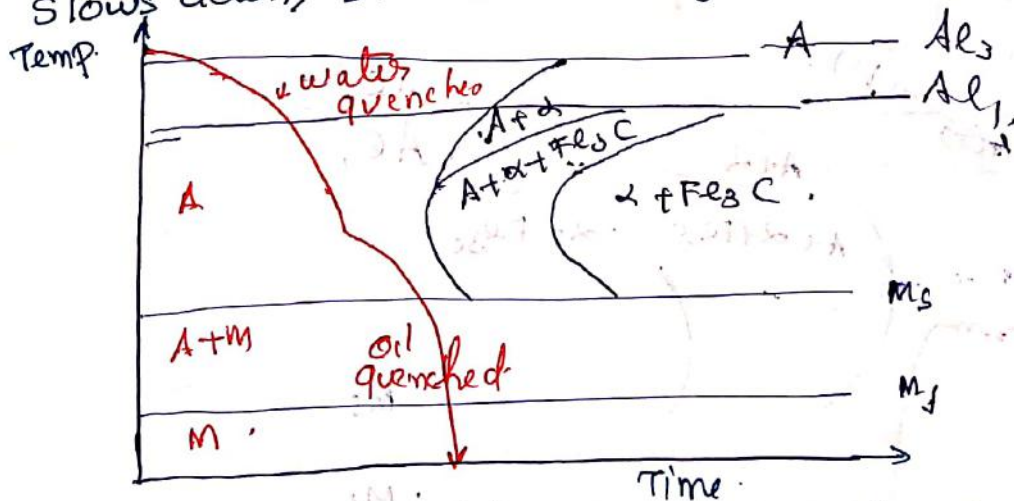 slows down,
Temp.
A
Ae3
water
quenched
Ae1,
A+α
A+α+Fe3C
α+Fe3C.
A
Ms
A+M
oil
quenched.
Mf
M.
Time.